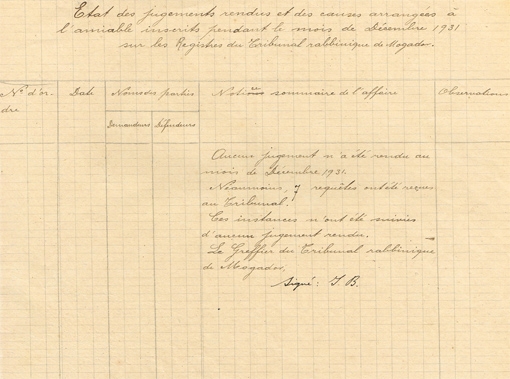 Etat des jugements rendus et des causes arrangées à
l'amiable inscrits pendant le mois de Décembre 1931
sur les Registres du Tribunal rabbinique de Mogador.
N° d'or-
dre
Date
Noms des parties
Demandeurs
Défendeurs
sommaire de l'affaire
Observations
Aucun jugement n'a été rendu au
mois de Décembre 1931.
Néanmoins, 7 requêtes ont été reçues
au Tribunal.
Ces instances n'ont été suivies
d'aucun jugement rendu.
Le Greffier du Tribunal rabbinique
de Mogador,
Signé: I. B.